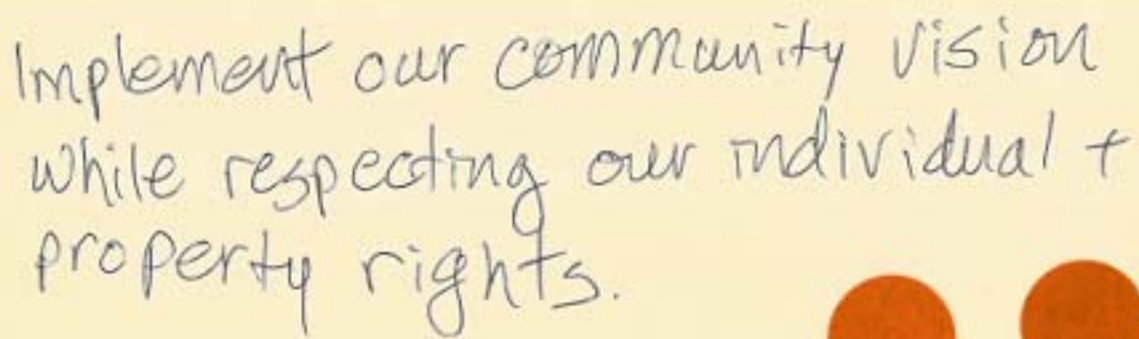 Implement our community vision
while respecting our individual +
property rights.